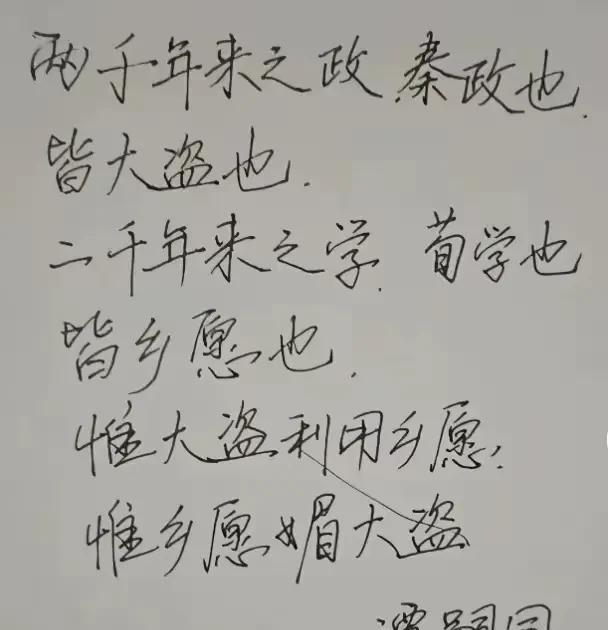 两千年来之政.秦政也.
皆大盗也.
二千年来之学.荀学也
皆乡愿也.
惟大盗利用乡愿;
惟乡愿媚大盗
谭嗣同